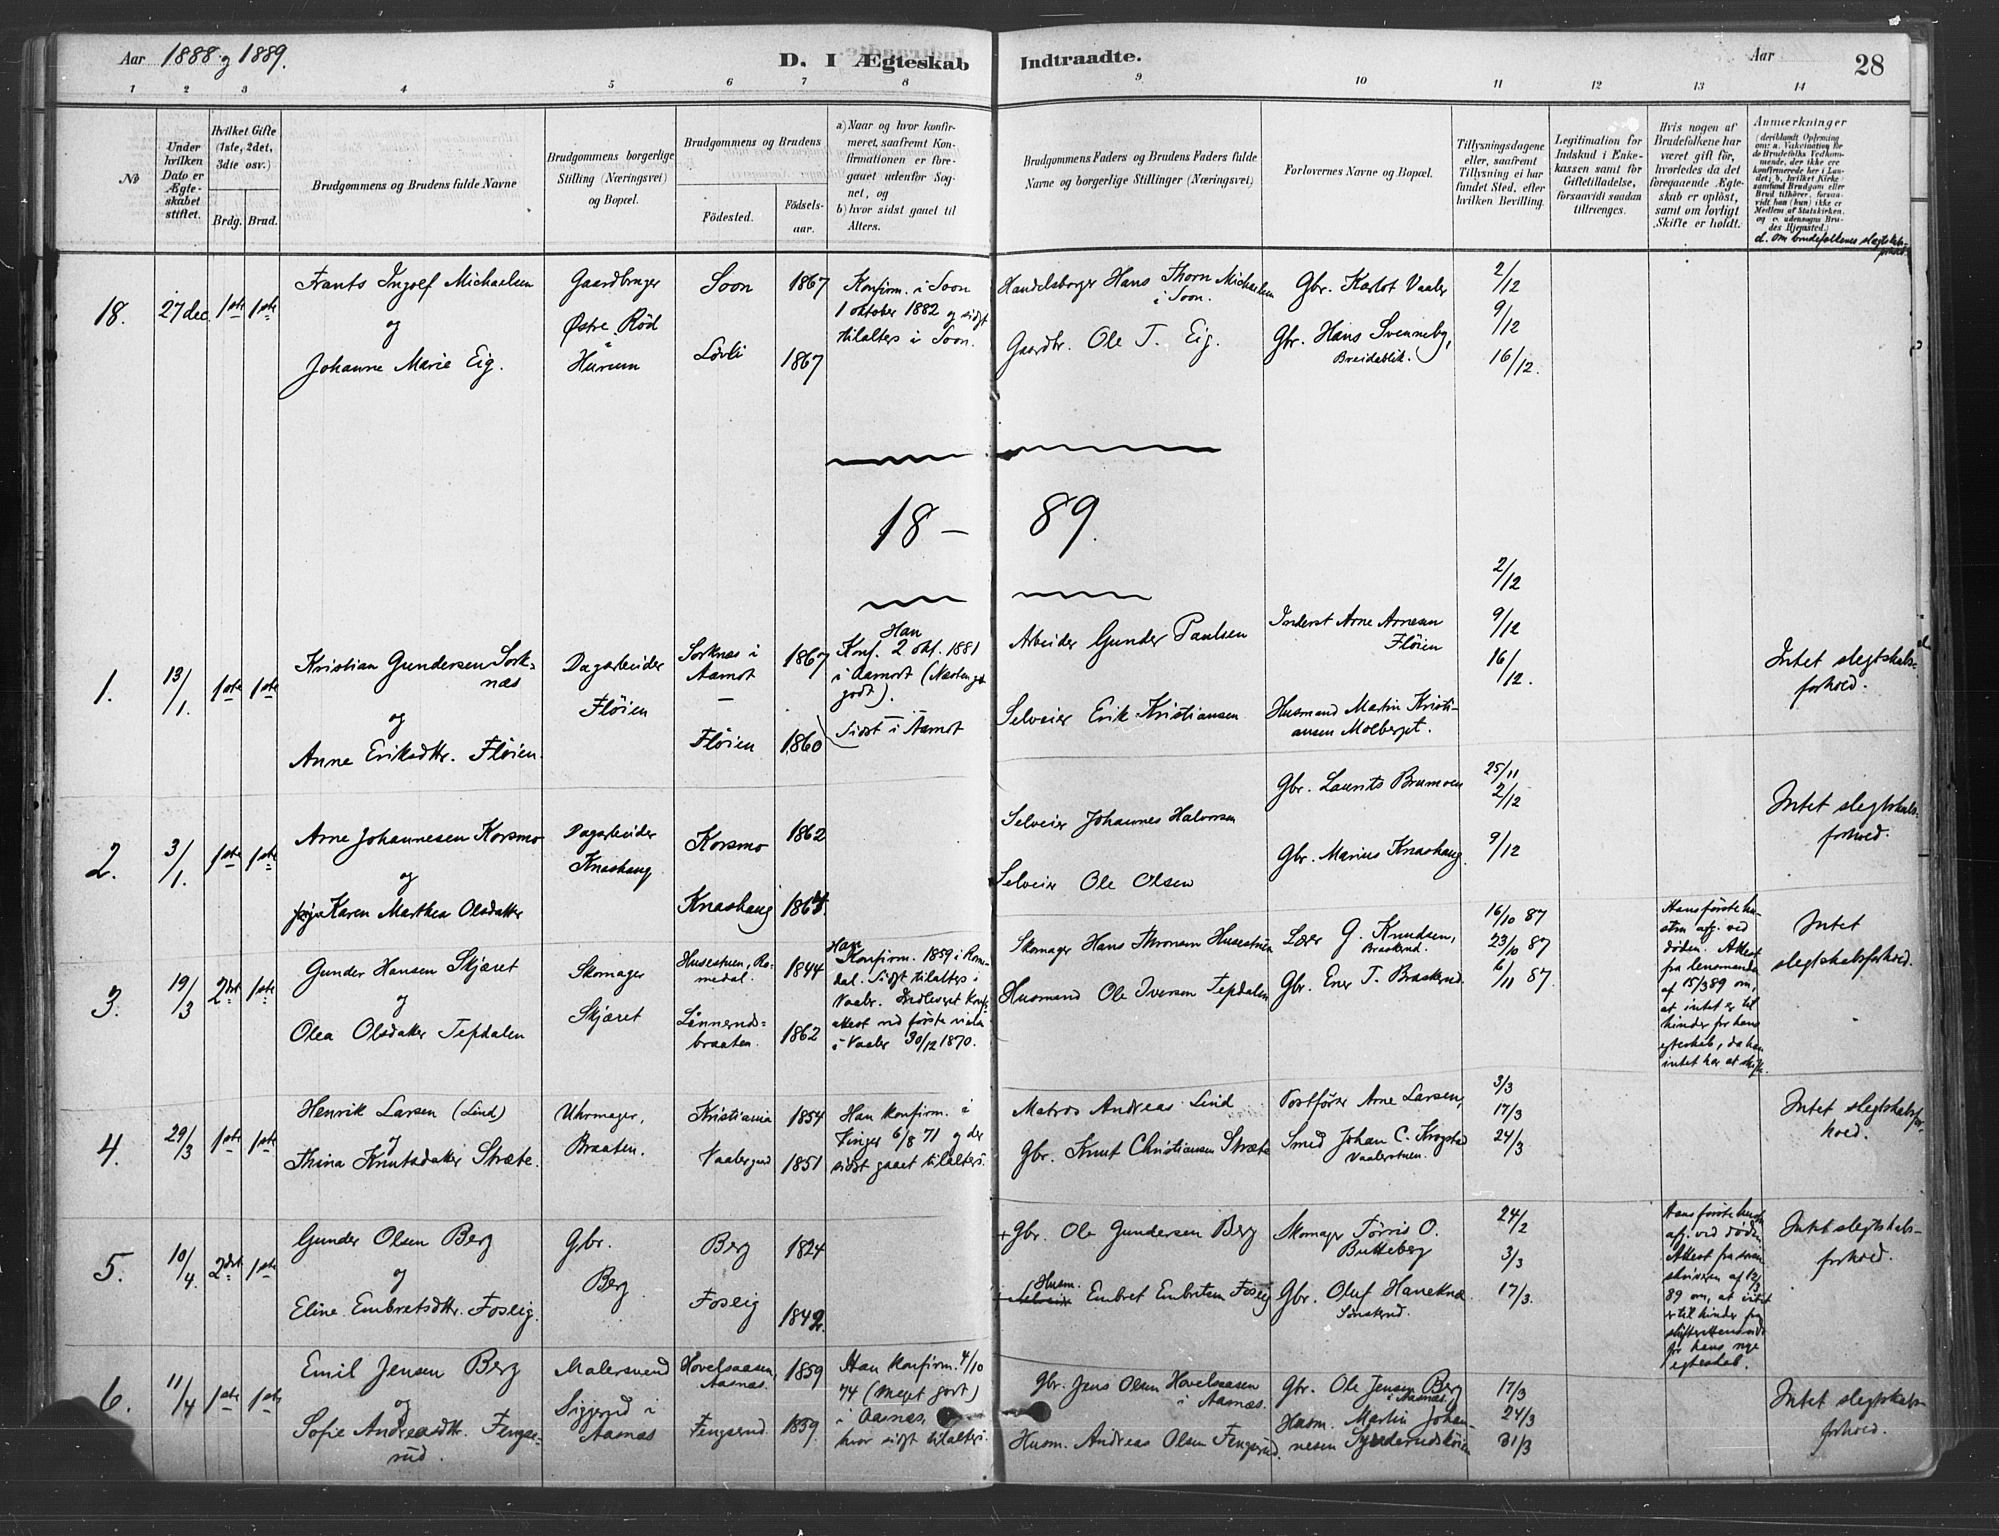 Aar 1888 og 1889.
D. I Ægteskab Indtraadte.
Aar
28
1 2 3 4 5 6 7 8 9 10 11 12 13 14
No
Under hvilken Dato er Ægteskabet stiftet.
Hvilket Gifte (1ste, 2det, 3die osv.)
Brdg. Brud.
Brudgommens og Brudens fulde Navne
Brudgommens borgerlige Stilling (Næringsvei) og Bopæl.
Brudgommens og Brudens
Födested.
Födsels-aar.
a) Naar og hvor konfirmeret, saafremt Konfirmationen er foregaaet udenfor Sognet, og
b) hvor sidst gaaet til Alters.
Brudgommens Faders og Brudens Faders fulde Navne og borgerlige Stillinger (Næringsvei)
Forlovernes Navne og Bopæl.
Tillysningsdagene eller, saafremt Tillysning ei har fundet Sted, efter hvilken Bevilling.
Legitimation for Indskud i Enkekassen samt for Giftetilladelse, forsaavidt saadan tiltrænges.
Hvis nogen af Brudefolkene har været gift för, hvorledes da det foregaaende Ægteskab er oplöst, samt om lovligt Skifte er holdt.
Anmærkninger
d. om brudefolkenes slegtskabs-
18. 27 dec. 1ste 1ste
Frants Ingolf Michaelsen
og
Johanne Marie Eig.
Gaardbruger
Østre Rød
i
Hurum
Soon 1867
Løvli 1867
Konfirm. i Soon
1 oktober 1882 og sidst
tilalters i Soon.
Handelsborger Hans Thorn Michaelsen
i Soon.
Gaardbr. Ole T. Eig.
Gbr. Karlot Vaaler
Gbr. Hans Svenneby,
Breidablik.
2/12
9/12
16/12.
18 — 89.
1. 13/1. 1ste 1ste
Kristian Gundersen Sork-
næs
og
Anne Eriksdtr. Fløien.
Dagarbeider
Fløien
Sorknæs i
Aamot
Fløien
1867
1860
Han
Konf. 2 okt. 1881
i Aamodt (Næstenget
godt).
Sidst i Aamot
Arbeider Gunder Paulsen
Selveier Erik Kristiansen
Inderst Arne Arnesen
Fløien
Husmand Martin Kristi-
ansen Molberget.
2/12
9/12
16/12.
Intet slegtskabs-
forhold.
2. 3/1. 1ste 1ste
Arne Johannesen Korsmo
og
Karen Marthea Olsdatter
Dagarbeider
Knashaug
Korsmo 1862
Knashaug 1864.
Selveier Johannes Halvorsen
Selveier Ole Olsen
Gbr. Laurits Brumoen
Gbr. Marius Knashaug.
25/11
2/12
9/12
Intet slegtskabs-
forhold.
3. 19/3 2det 1ste
Gunder Hansen Skjæret
og
Olea Olsdatter Tepdalen
Skomager
Skjæret
Husestuen, Ro-
medal. 1844
Lönneruds-
braaten. 1862
Han
Konfirm. 1859 i Rome-
dal. Sidst tilalters i
Vaaler. Indleveret konf.
attest ved første vielse
i Vaaler 30/12 1870.
Skomager Hans Thronsen Husestuen
Husmand Ole Iversen Tepdalen
Lærer G. Knudsen,
Braskerud.
Gbr. Ener T. Braskerud.
16/10 87
23/10 87
6/11 87.
Hans første hu-
stru afg. ved
døden. Attest
fra lensmanden
af 15/3 89 om,
at intet er til
hinder for hans
egteskab, da han
intet har at skifte.
Intet
slegtskabsforhold.
4. 29/3 1ste 1ste
Henrik Larsen (Lind)
og
Thina Knutsdatter Stræte.
Uhrmager,
Braaten.
Kristiania 1854
Vaalergaard 1851
Han konfirm. i
Vinger 6/8 71 og der
sidst gaaet tilalters.
Matros Andreas Lind
Gbr. Knut Christiansen Stræte
Postfører Arne Larsen,
Smed Johan C. Krogstad
Vaalerstuen.
3/3
17/3
24/3
Intet slegtskabsfor-
hold.
5. 10/4. 2det 1ste
Gunder Olsen Berg
og
Eline Embretsdtr. Foseig.
Gbr.
Berg
Berg 1824
Foseig 1842.
+ Gbr. Ole Gundersen Berg
Husm.
Embret Embretsen Foseig
Skomager Tørris O.
Butteberg
Gbr. Oluf Haneknæ
Sønskerud.
24/2
3/3
17/3.
Hans første hustru
afg. ved døden.
Attest fra soren-
skriveren af 12/3
89 om, at intet
er til hinder fra
skifterettens side
for hans nye
egteskab.
Intet slegtskabs-
forhold.
6. 11/4 1ste 1ste
Emil Jensen Berg
og
Sofie Andreasdtr. Fengse-
rud.
Malersvend
Siggerud i
Aasnæs
Hovelsaasen,
Aasnæs. 1859
Fengserud. 1859.
Han konfirm. 4/10
74 (meget godt)
i Aasnæs,
hvor sidst tilalters.
Gbr. Jens Olsen Hovelsaasen
i Aasnæs.
Husm. Andreas Olsen Fengserud.
Gbr. Ole Jensen Berg
i Aasnæs.
Husm. Martin Johan-
nesen Synderudskoien
17/3
24/3
31/3
Intet slegtskabs-
forhold.